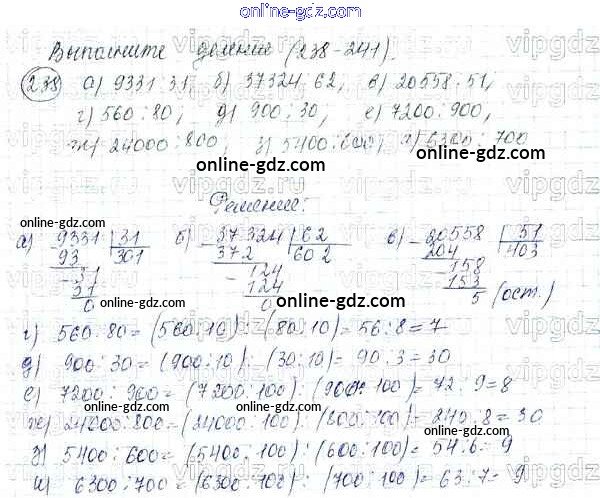 online-gdz.com
Выполните деление (238-241).
238 а) 9331:31, б) 37324:62, в) 20558:51,
г) 560:80, д) 900:30, е) 7200:900,
ж) 24000:800, з) 5400:600, и) 6300:700
online-gdz.com online-gdz.com
Решение:
online-gdz.com online-gdz.com online-gdz.com
а) 9331 31 б) 37324 62 в) 20558 51
93 301 372 602 204 403
31 124 158
31 124 153
0 0 5 (ост.)
online-gdz.com online-gdz.com
г) 560:80=(560:10):(80:10)=56:8=7
д) 900:30=(900:10):(30:10)=90:3=30
е) 7200:900=(7200:100):(900:100)=72:9=8
online-gdz.com online-gdz.com online-gdz.com
ж) 24000:800=(24000:100):(800:100)=240:8=30
з) 5400:600=(5400:100):(600:100)=54:6=9
и) 6300:700=(6300:100):(700:100)=63:7=9
online-gdz.com online-gdz.com